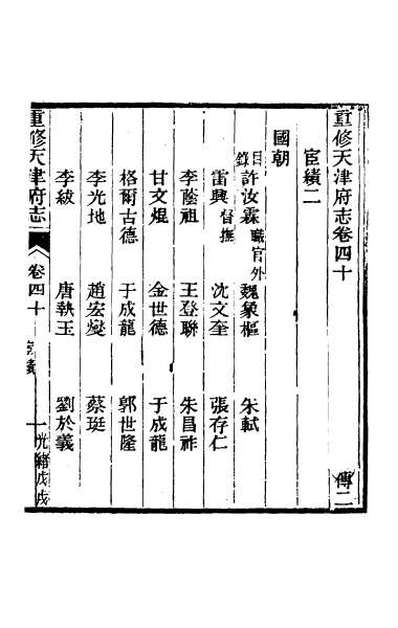 重修天津府志卷四十 傳二
宦績二
國朝
目錄 許汝霖 職官外 魏象樞 朱軾
雷興 督撫 沈文奎 張存仁
李蔭祖 王登聯 朱昌祚
甘文焜 金世德 于成龍
格爾古德 于成龍 郭世隆
李光地 趙宏燮 蔡珽
李紱 唐執玉 劉於義
重修天津府志 卷四十 宦績 一 光緒戊戌